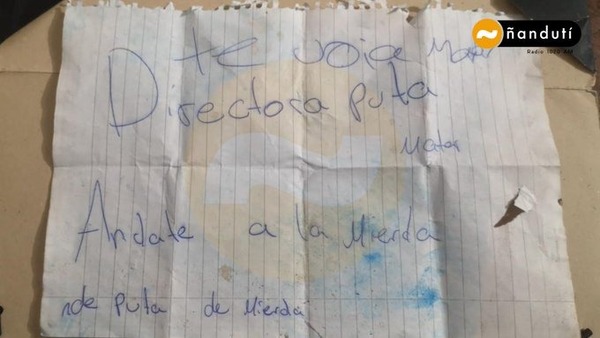 ñandutí
Radio 1020 AM
te voia Matar
Directora puta
Matar
Andate a la Mierda
nde puta de Mierda